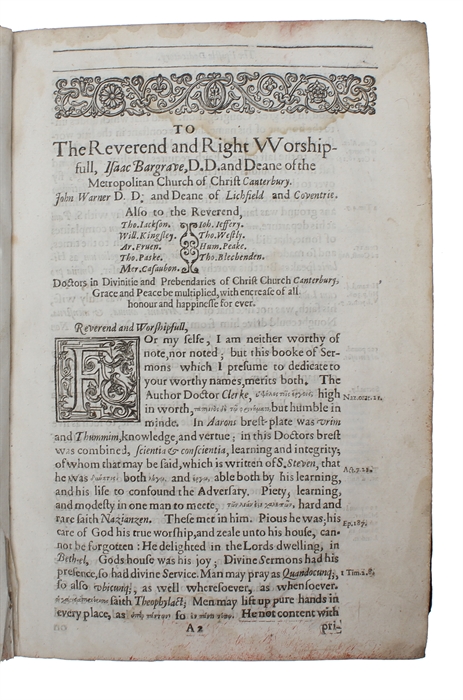 TO
The Reverend and Right Worship-
full, Isaac Bargrave, D.D. and Deane of the
Metropolitan Church of Christ Canterbury.
John Warner D. D. and Deane of Lichfield and Coventrie.
Also to the Reverend,
Tho. Iackson. Ioh. Ieffery.
Will. Kingsley. Tho. Westly.
Ar. Fruen. Hum. Peake.
Tho. Paske. Tho. Blechenden.
Mer. Casaubon.
Doctors in Divinitie and Prebendaries of Christ Church Canterbury,
Grace and Peace be multiplied, with encrease of all
honour and happinesse for ever.
Reverend and Worshipfull,
FOr my selfe, I am neither worthy of
note, nor noted; but this booke of Ser-
mons which I presume to dedicate to
your worthy names, merits both. The
Author Doctor Clerke, high
in worth, but humble in
minde. In Aarons brest-plate was urim
and Thummim, knowledge, and vertue; in this Doctors brest
was combined, scientia & conscientia, learning and integrity;
of whom that may be said, which is written of S. Steven, that
he was both and able both by his learning,
and his life to confound the Adversary. Piety, learning,
and modesty in one man to meete, hard and
rare saith Nazianzen. These met in him. Pious he was; his
care of God his true worship, and zeale unto his house, can-
not be forgotten: He delighted in the Lords dwelling, in
Beth-el, Gods house was his joy; Divine Sermons had his
presence, so had divine Service. Man may pray as Quandocunq;,
1 Tim. 2.8.
so also ubicunq;, as well wheresoever, as whensoever.
saith Theophylact; Men may lift up pure hands in
every place, as so He not content with
A2 pri-